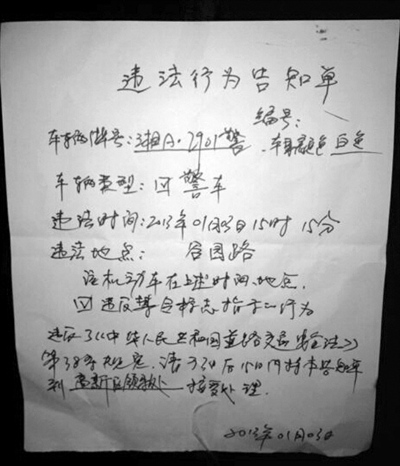 违法行为告知单
编号:
车辆牌号:湘A·2901警 车身颜色 白色
车辆类型: ☑ 警车
违法时间:2013年01月03日15时15分
违法地点: 谷园路
该机动车在上述时间、地点,
☑ 违反禁令标志指示的行为
违反了《中华人民共和国道路交通安全法》
第38条规定。请于3日后15日内持本告知单
到 高新区 接受处理.
2013年01月03日